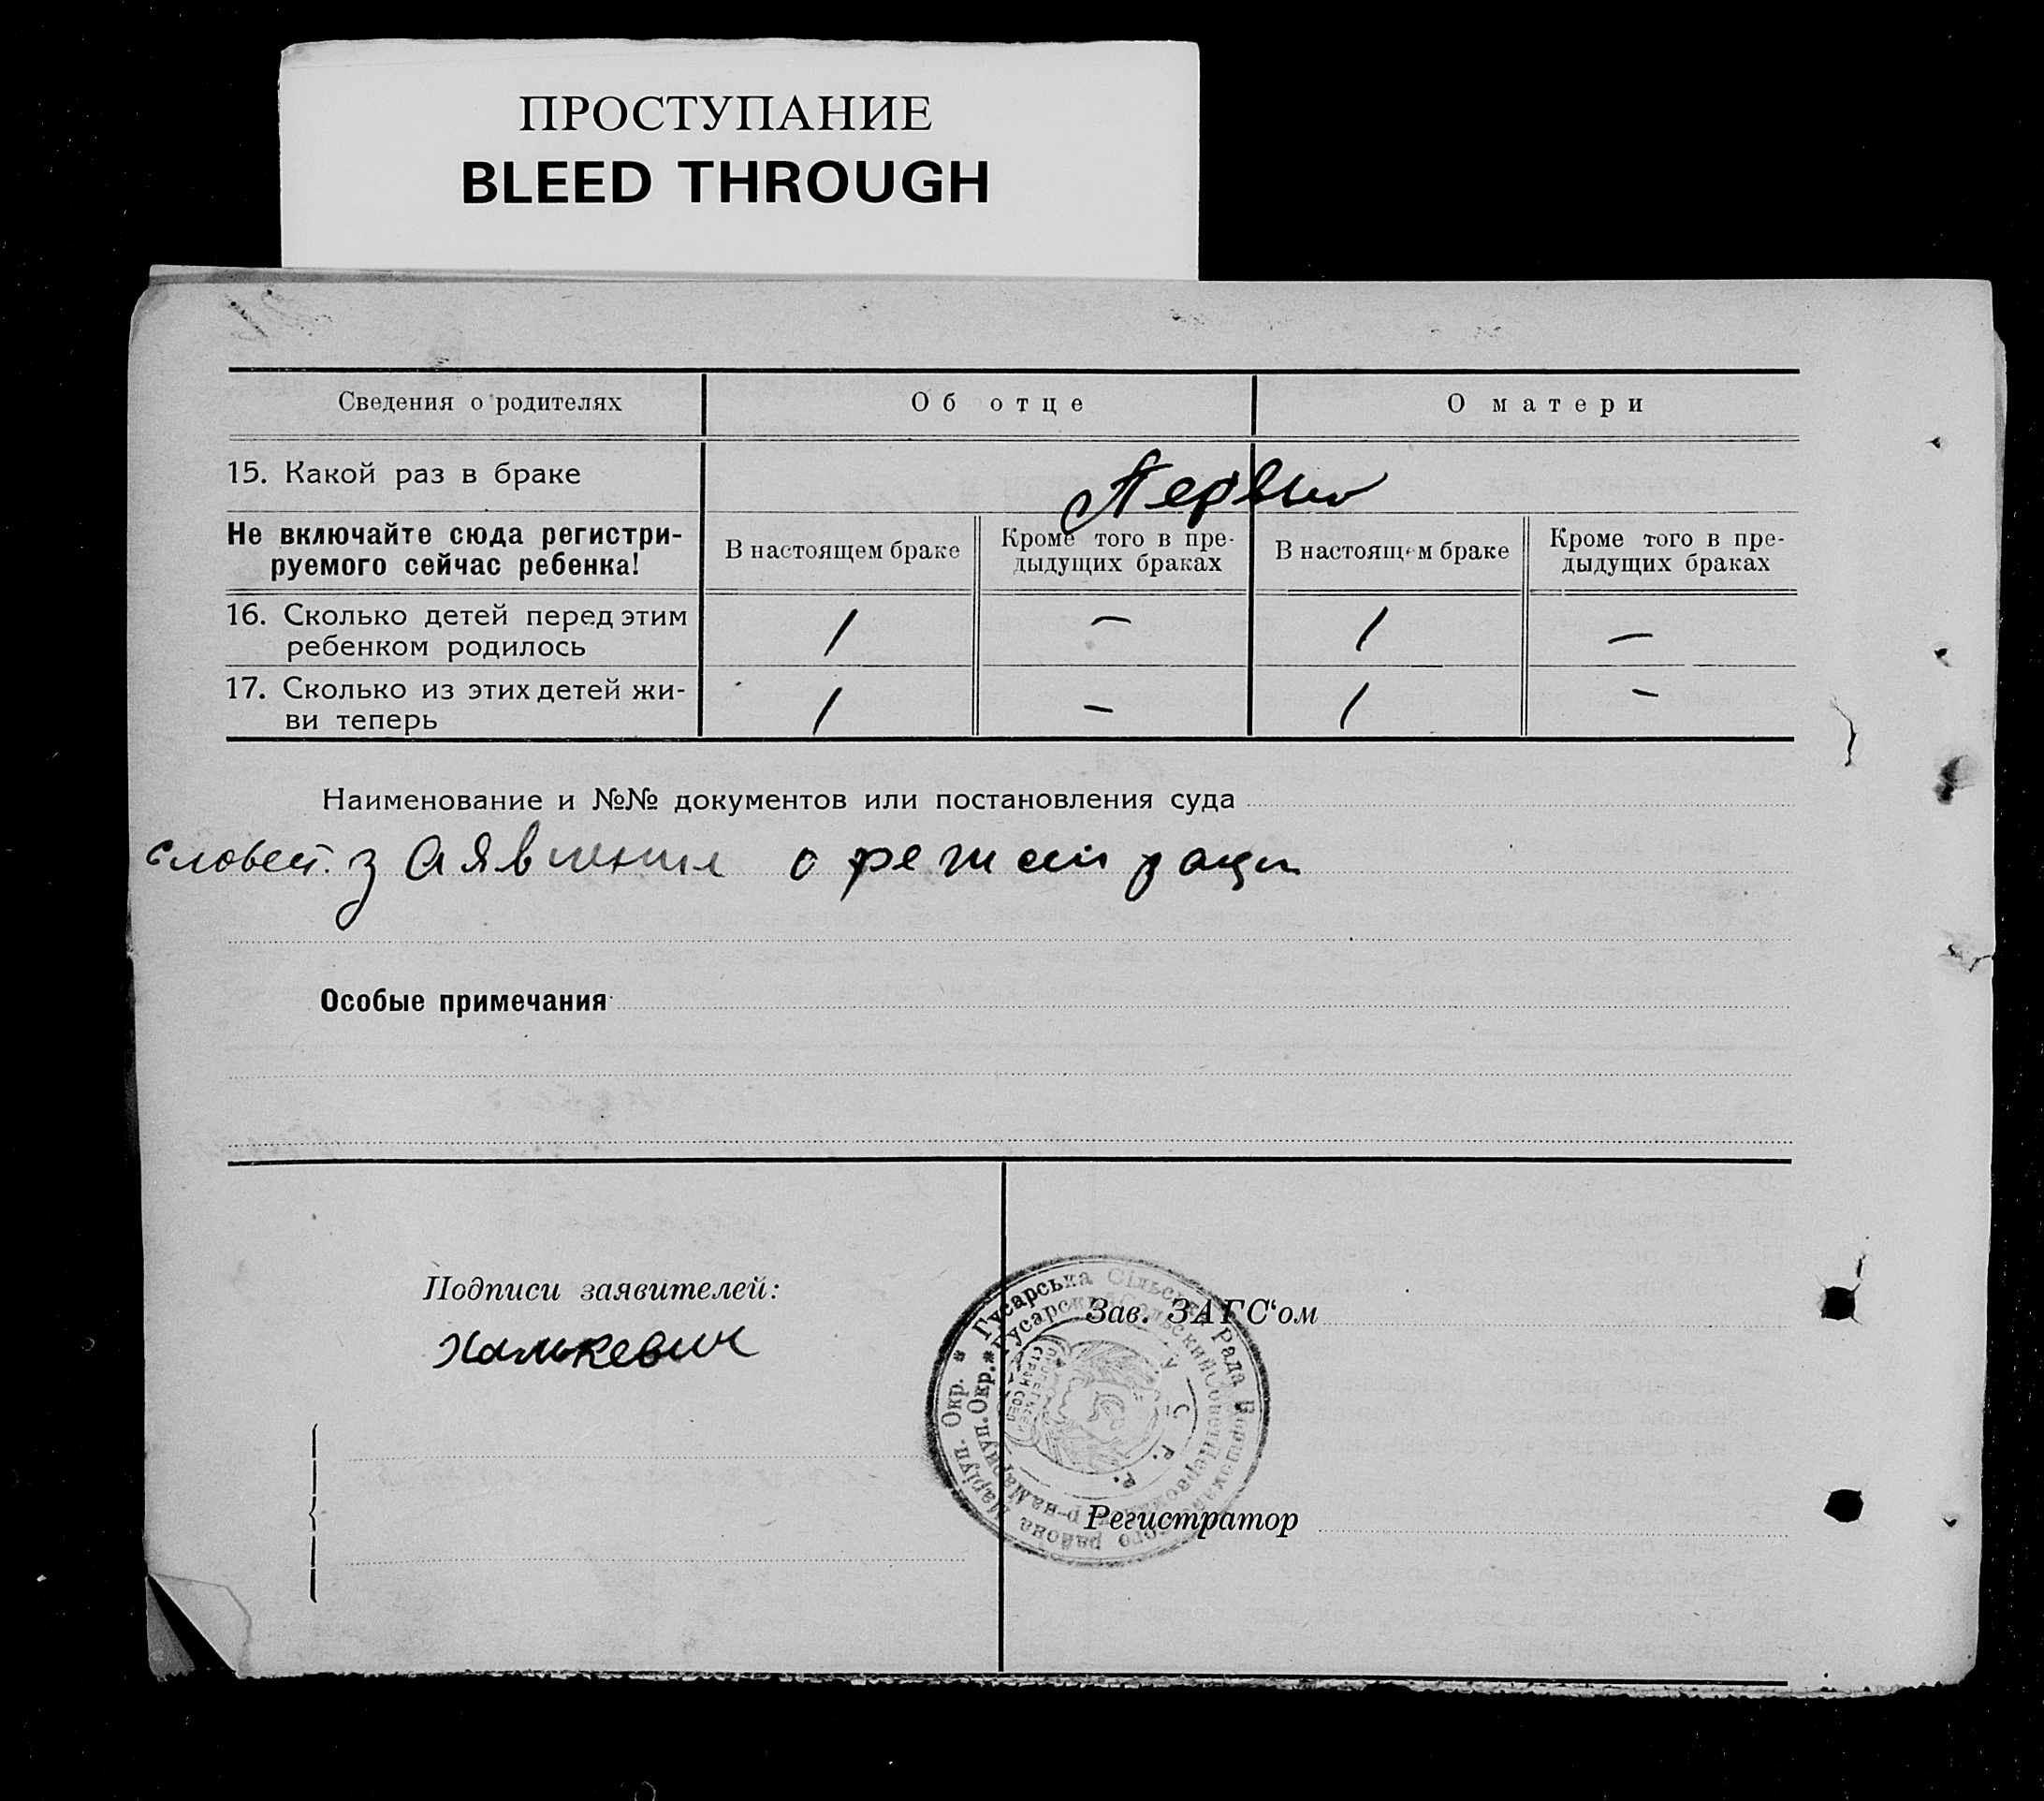 ПРОСТУПАНИЕ
BLEED THROUGH
Сведения о родителях Об отце О матери
15. Какой раз в браке Первый
Не включайте сюда регистри-
руемого сейчас ребенка!
В настоящем браке
Кроме того в пре-
дыдущих браках
В настоящем браке
Кроме того в пре-
дыдущих браках
16. Сколько детей перед этим
ребенком родилось 1 — 1 —
17. Сколько из этих детей жи-
ви теперь 1 — 1 —
Наименование и №№ документов или постановления суда
заявления о регистрации
Особые примечания
Подписи заявителей:
Халькевич
Зав. ЗАГС‘ом
Регистратор
Гусарська Сільська Рада
Маріуп. Окр.
Мариуп. Окр.
У. С. Р. Р.